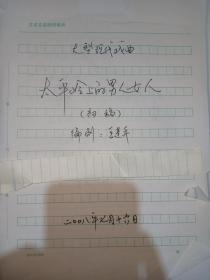 大型现代戏曲
太平岭上的男人女人
(初稿)
编剧：王建军
二〇〇八年元月十六日